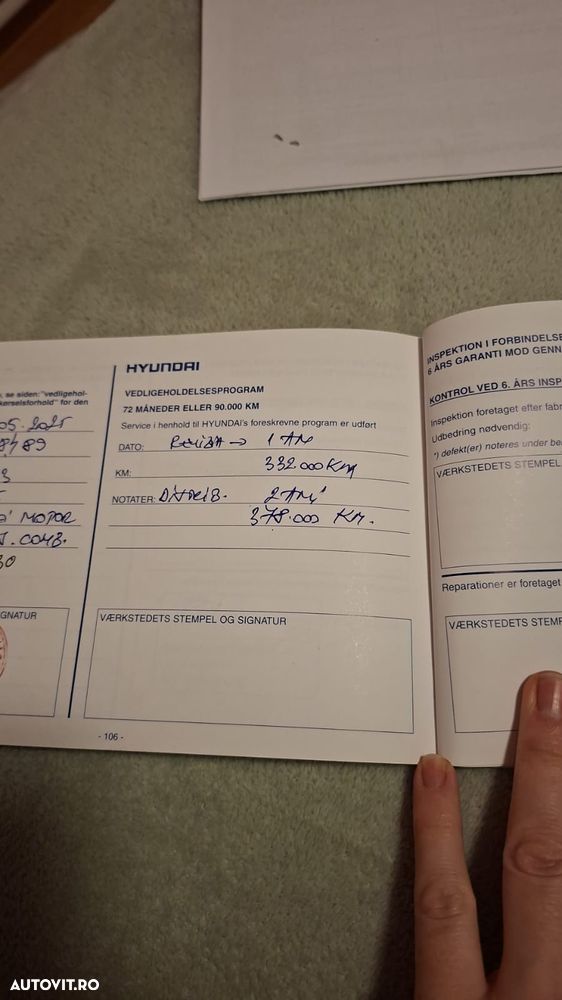 , se siden: "vedligehol-
kørselsforhold" for den
05.2025
MOTOR
30
GNATUR
HYUNDAI
VEDLIGEHOLDELSESPROGRAM
72 MÅNEDER ELLER 90.000 KM
Service i henhold til HYUNDAI's foreskrevne program er udført
DATO: 1 AN
KM: 332.000 KM
NOTATER: DISTRIB. 2 ANI
378.000 KM.
VÆRKSTEDETS STEMPEL OG SIGNATUR
- 106 -
INSPEKTION I FORBINDELSE
6 ÅRS GARANTI MOD GENN
KONTROL VED 6. ÅRS INSP
Inspektion foretaget efter fab
Udbedring nødvendig:
*) defekt(er) noteres under be
VÆRKSTEDETS STEMPEL
Reparationer er foretaget
VÆRKSTEDETS STEMP
AUTOVIT.RO